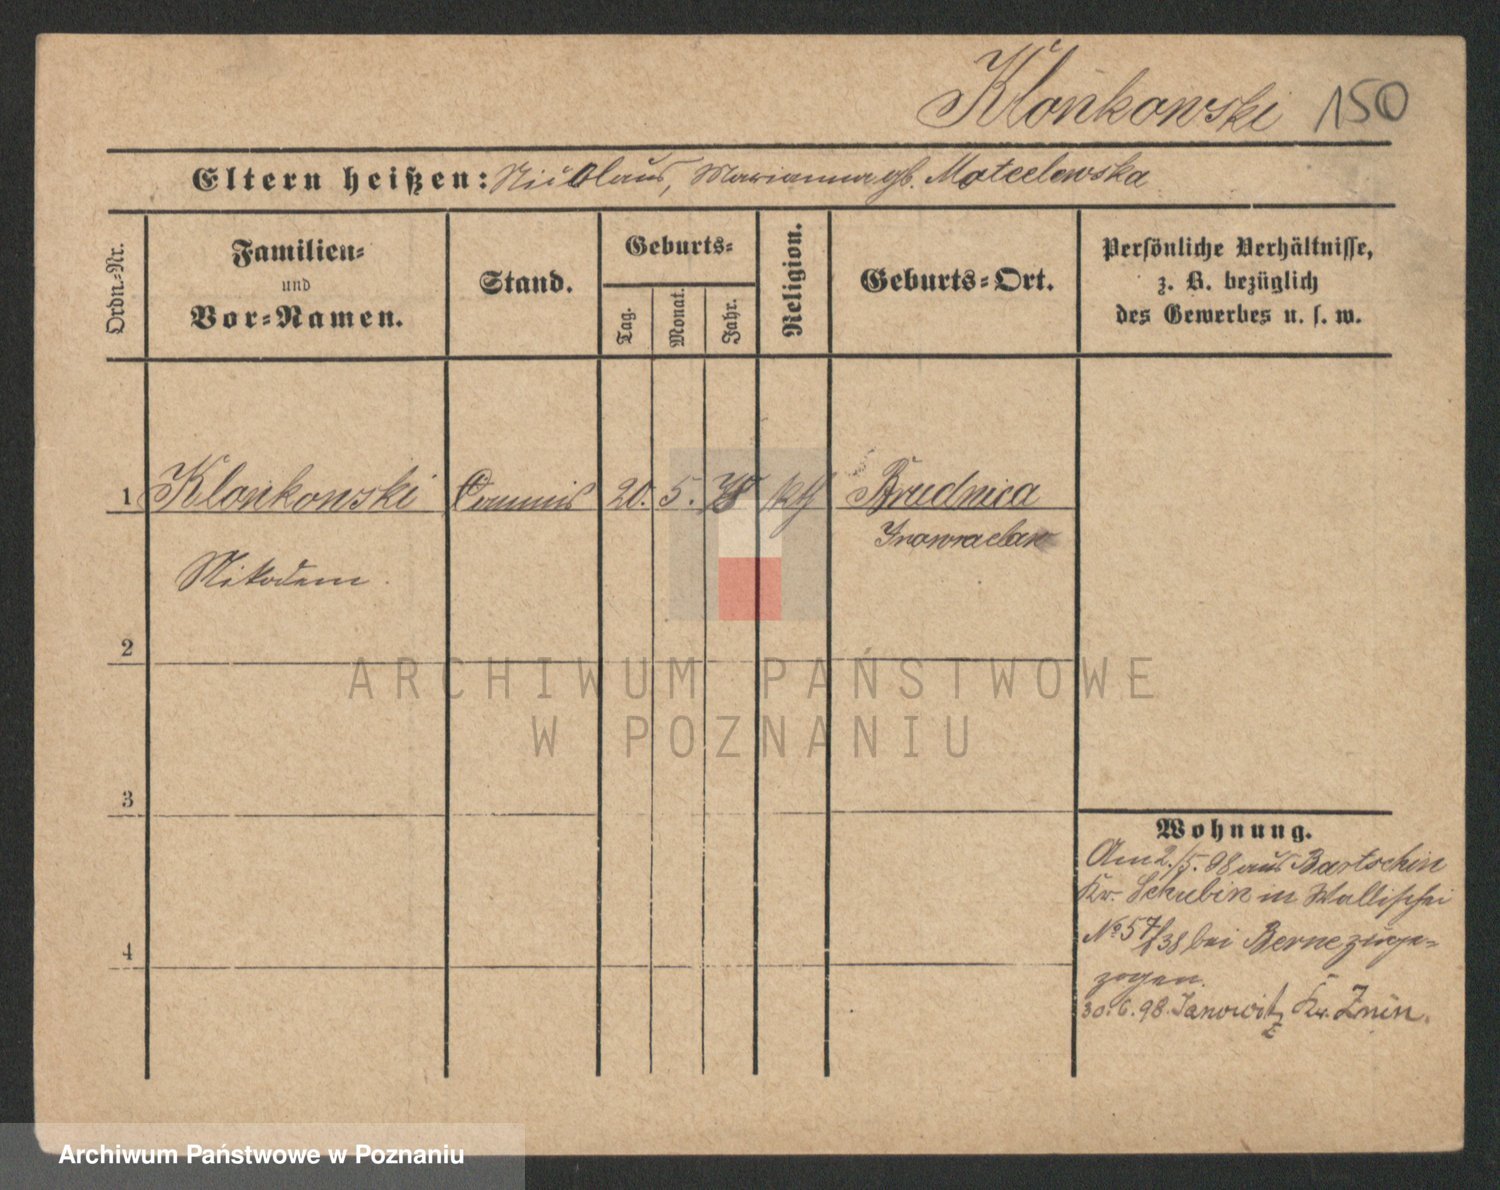 Klonkowski 150
Eltern heißen: Nicolaus, Marianna gb.
Ordn.-Nr.
Familien-
und
Vor-Namen.
Stand.
Geburts-
Tag.
Monat.
Jahr.
Religion.
Geburts-Ort.
Persönliche Verhältnisse,
z. B. bezüglich
des Gewerbes u. s. w.
1 Klonkowski Commis 20. 5. 78 kth Brudnica
Inowraclaw
Nikodem.
2
ARCHIWUM PAŃSTWOWE
W POZNANIU
3
Wohnung.
Am 2./5. 98 aus Bartschin
Kr. Schubin in Wallischei
No 57/38 bei Berne zuge-
zogen.
4
30.6.98. Janowitz Kr. Znin.
Archiwum Państwowe w Poznaniu